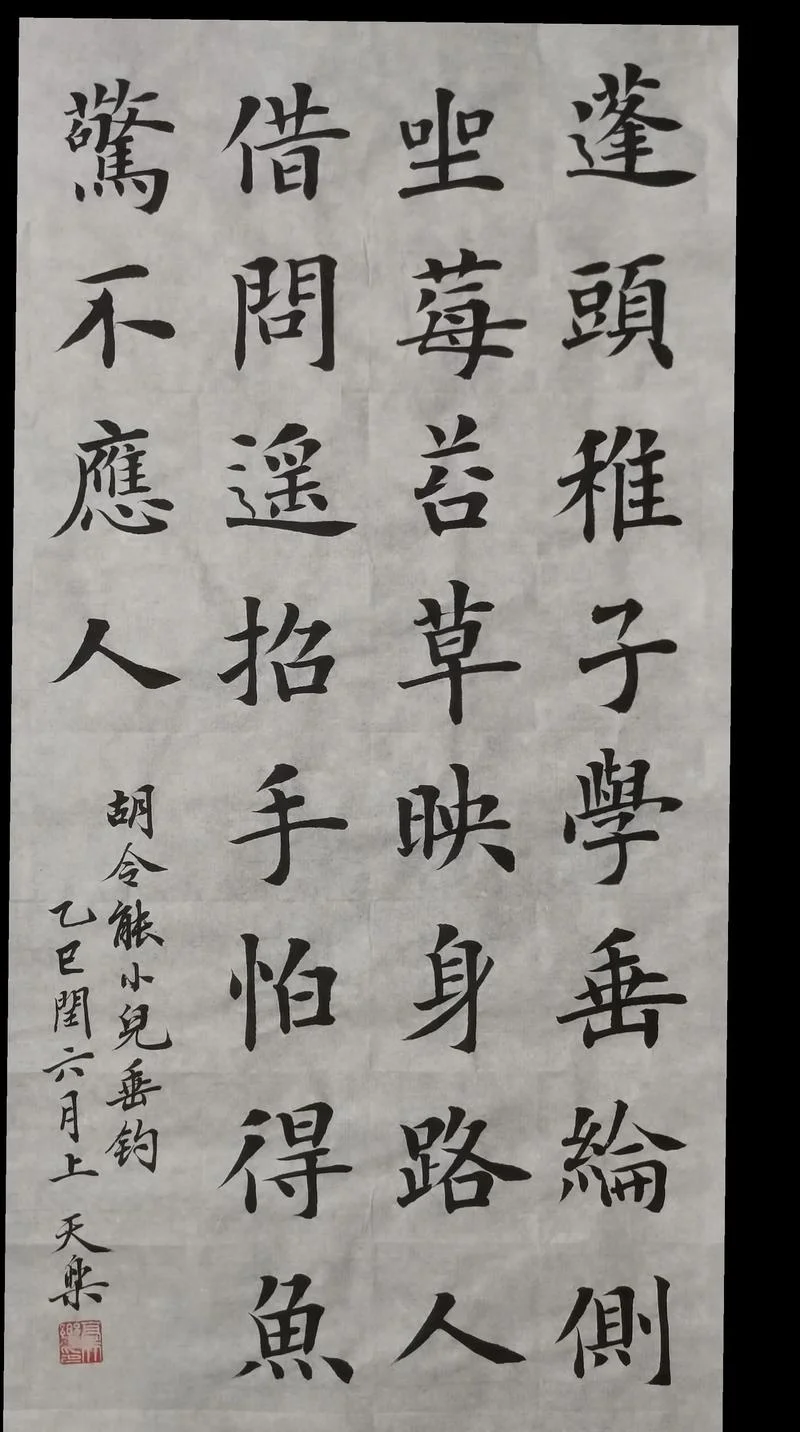 蓬頭稚子學垂綸側
坐莓苔草映身路人
借問遥招手怕得魚
驚不應人
胡令能小兒垂钓
乙巳閏六月上 天樂